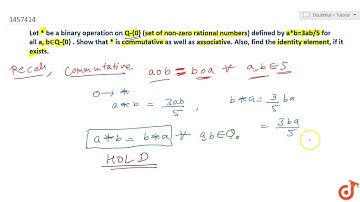 DoubtNut - Tutorial
1457414
Let * be a binary operation on Q-{0} (set of non-zero rational numbers) defined by a*b=3ab/5 for
all a, b∈Q-{0} . Show that * is commutative as well as associative. Also, find the identity element, if it
exists.
Recall, Commutative aob = boa ∀ a,b∈S
o→ *
a*b = 3ab/5 , b*a = 3/5 ba
= 3ba/5
a*b = b*a ∀ a,b∈Q₀
HOLD